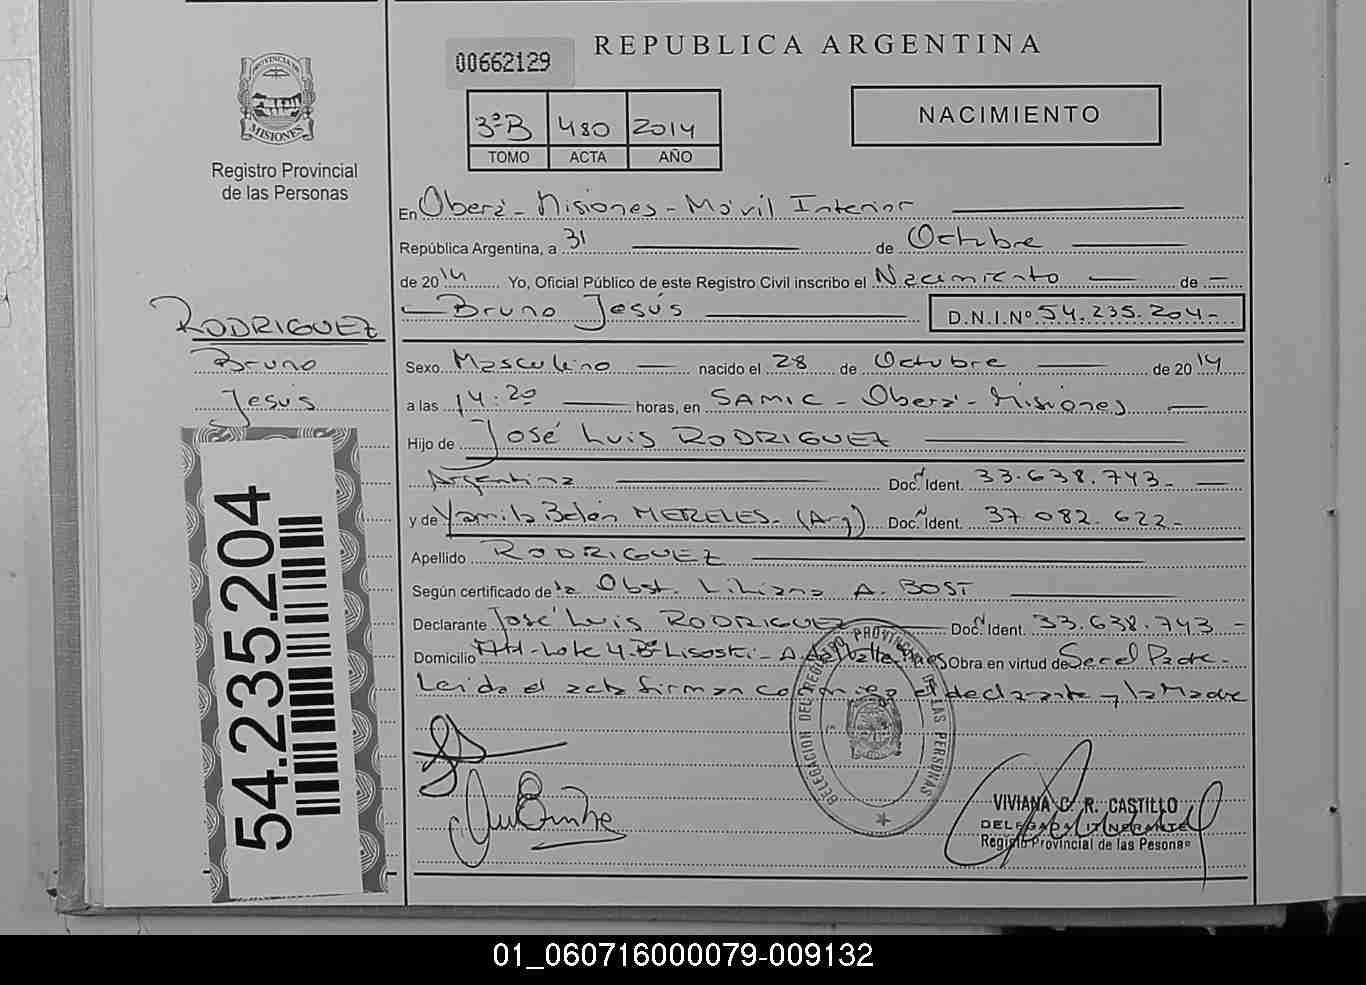 REPUBLICA ARGENTINA
00662129
PROVINCIA DE
MISIONES
Registro Provincial
de las Personas
3ºB 480 2014
TOMO ACTA AÑO
NACIMIENTO
En Oberá - Misiones - Móvil Interior
República Argentina, a 31 de Octubre
de 2014 Yo, Oficial Público de este Registro Civil inscribo el Nacimiento de
Bruno Jesús D.N.I.Nº 54.235.204-
RODRIGUEZ
Bruno
Jesús
Sexo Masculino nacido el 28 de Octubre de 2014
a las 14:20 horas, en SAMIC - Oberá - Misiones
Hijo de José Luis RODRIGUEZ
Argentina Doc. Ident. 33.638.743-
y de Yamila Belén MERELES. (Arg) Doc. Ident. 37.082.622-
Apellido RODRIGUEZ
Según certificado de la Obst. Liliana A. BOST
Declarante José Luis RODRIGUEZ Doc. Ident. 33.638.743 -
Domicilio Lote 4 Bº Obra en virtud de Ser el Padre-
Leida el acta firman conmigo el declarante y la Madre
54.235.204
DELEGACION DEL REGISTRO PROVINCIAL DE LAS PERSONAS
VIVIANA C. R. CASTILLO
DELEGADA ITINERANTE
Registro Provincial de las Pesonas
01_060716000079-009132